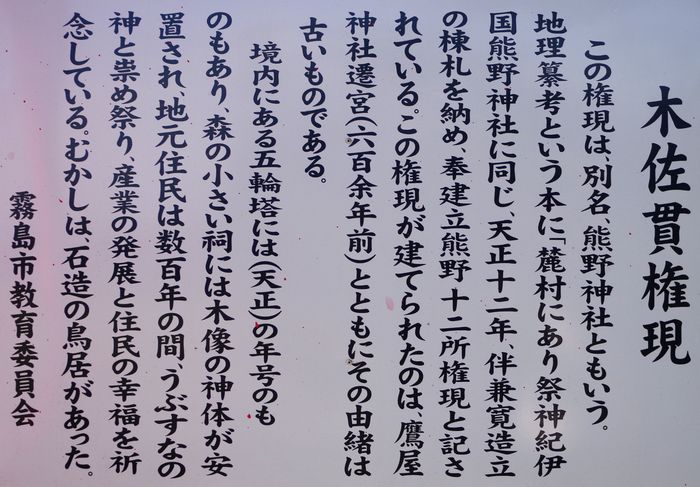 木佐貫権現
この権現は、別名、熊野神社ともいう。
地理纂考という本に「麓村にあり祭神紀伊
国熊野神社に同じ、天正十二年、伴兼寛造立
の棟札を納め、奉建立熊野十二所権現と記さ
れている。この権現が建てられたのは、鷹屋
神社遷宮(六百余年前)とともにその由緒は
古いものである。
境内にある五輪塔には(天正)の年号のも
のもあり、森の小さい祠には木像の神体が安
置され、地元住民は数百年の間、うぶすなの
神と崇め祭り、産業の発展と住民の幸福を祈
念している。むかしは、石造の鳥居があった。
霧島市教育委員会